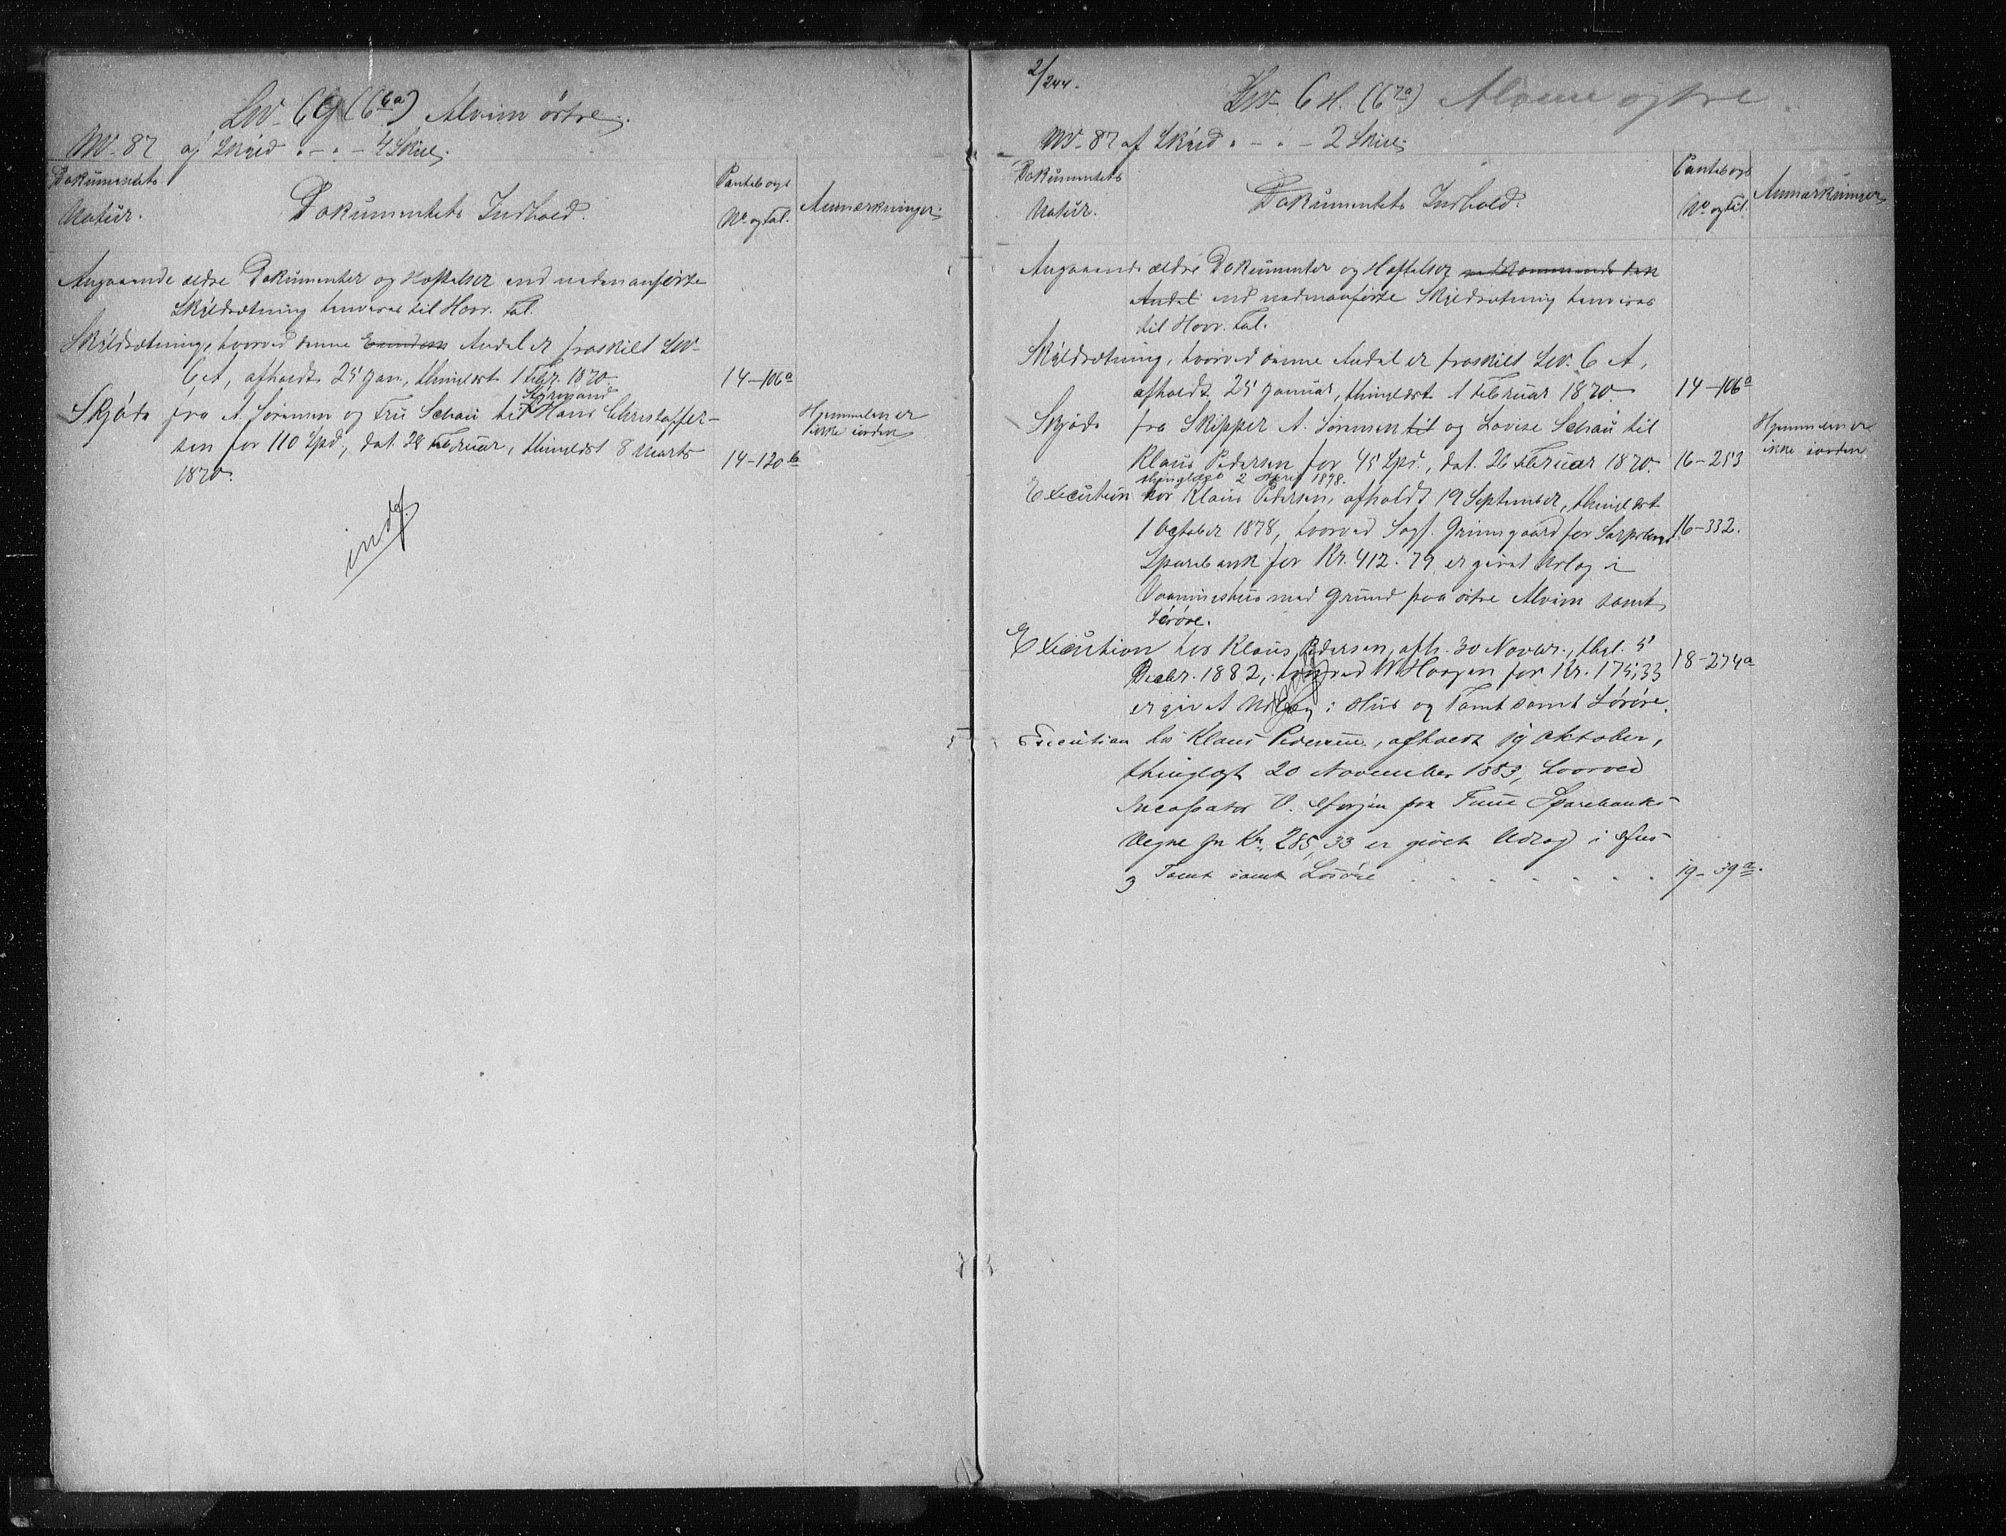 Lw. 6 g (6 6a) Alvim østre.
Mt. 87 af Skyld . - . - 4 Skill.
Dokumentets Natur.
Dokumentets Indhold.
Pantebogs No. og Fol.
Anmærkninger.
Angaaende ældre Dokumenter og Hæftelser end nedenanførte
Skyldsætning henvises til Hov. Fol.
Skyldsætning, hvorved denne Eiendom Andel er fraskilt Lw.
6 A, afholdt 25 Jan., thinglæst 1 Febr. 1870. 14-106a
Styrmand
Skjøde fra A. Sørensen og Fru Schau til Hans Christoffer-
sen for 110 Spd., dat. 28 Februar, thinglæst 8 Marts
1870. 14-120b
Hjemmelen er
ikke iorden
indf.
2/244.
Lw. 6 H. (6 7a) Alvim østre
Mt. 87 af Skyld . - . - 2 Skill.
Dokumentets Natur.
Dokumentets Indhold.
Pantebogs No. og Fol.
Anmærkninger
Angaaende ældre Dokumenter og Hæftelser vedkommende den
Andel end nedenanførte Skyldsætning henvises
til Hov. Fol.
Skyldsætning, hvorved denne Andel er fraskilt Lw. 6 A,
afholdt 25 Januar, thinglæst 1 Februar 1870. 14-106a
Skjøde fra Skipper A. Sørensen til og Lovise Schau til
Klaus Pedersen for 45 Spd., dat. 26 Februar 1870. 16-253
thinglæst 2 April 1878.
Hjemmelen er
ikke iorden
Execution hos Klaus Pedersen, afholdt 19 September, thinglæst
1 October 1878, hvorved Sagf. Grimsgaard for Sarpsborgs 16-332.
Sparebank for Kr. 412.79 er givet Udlæg i
Vaaningshus med Grund paa østre Alvim samt
Løsøre.
Execution hos Klaus Pedersen, afh. 30 Novbr., thgl. 5
Decbr. 1882, hvorved W Haagen for Kr. 175,33 18-274a
er givet Udlæg i Hus og Tomt samt Løsøre.
Execution hos Klaus Pedersen, afholdt 19 Oktober,
thinglæst 20 November 1883, hvorved
for Tune Sparebanks
Vegne for Kr. 285,33 er givet Udlæg i Hus
og Tomt samt Løsøre . . . . . . . 19-39a.